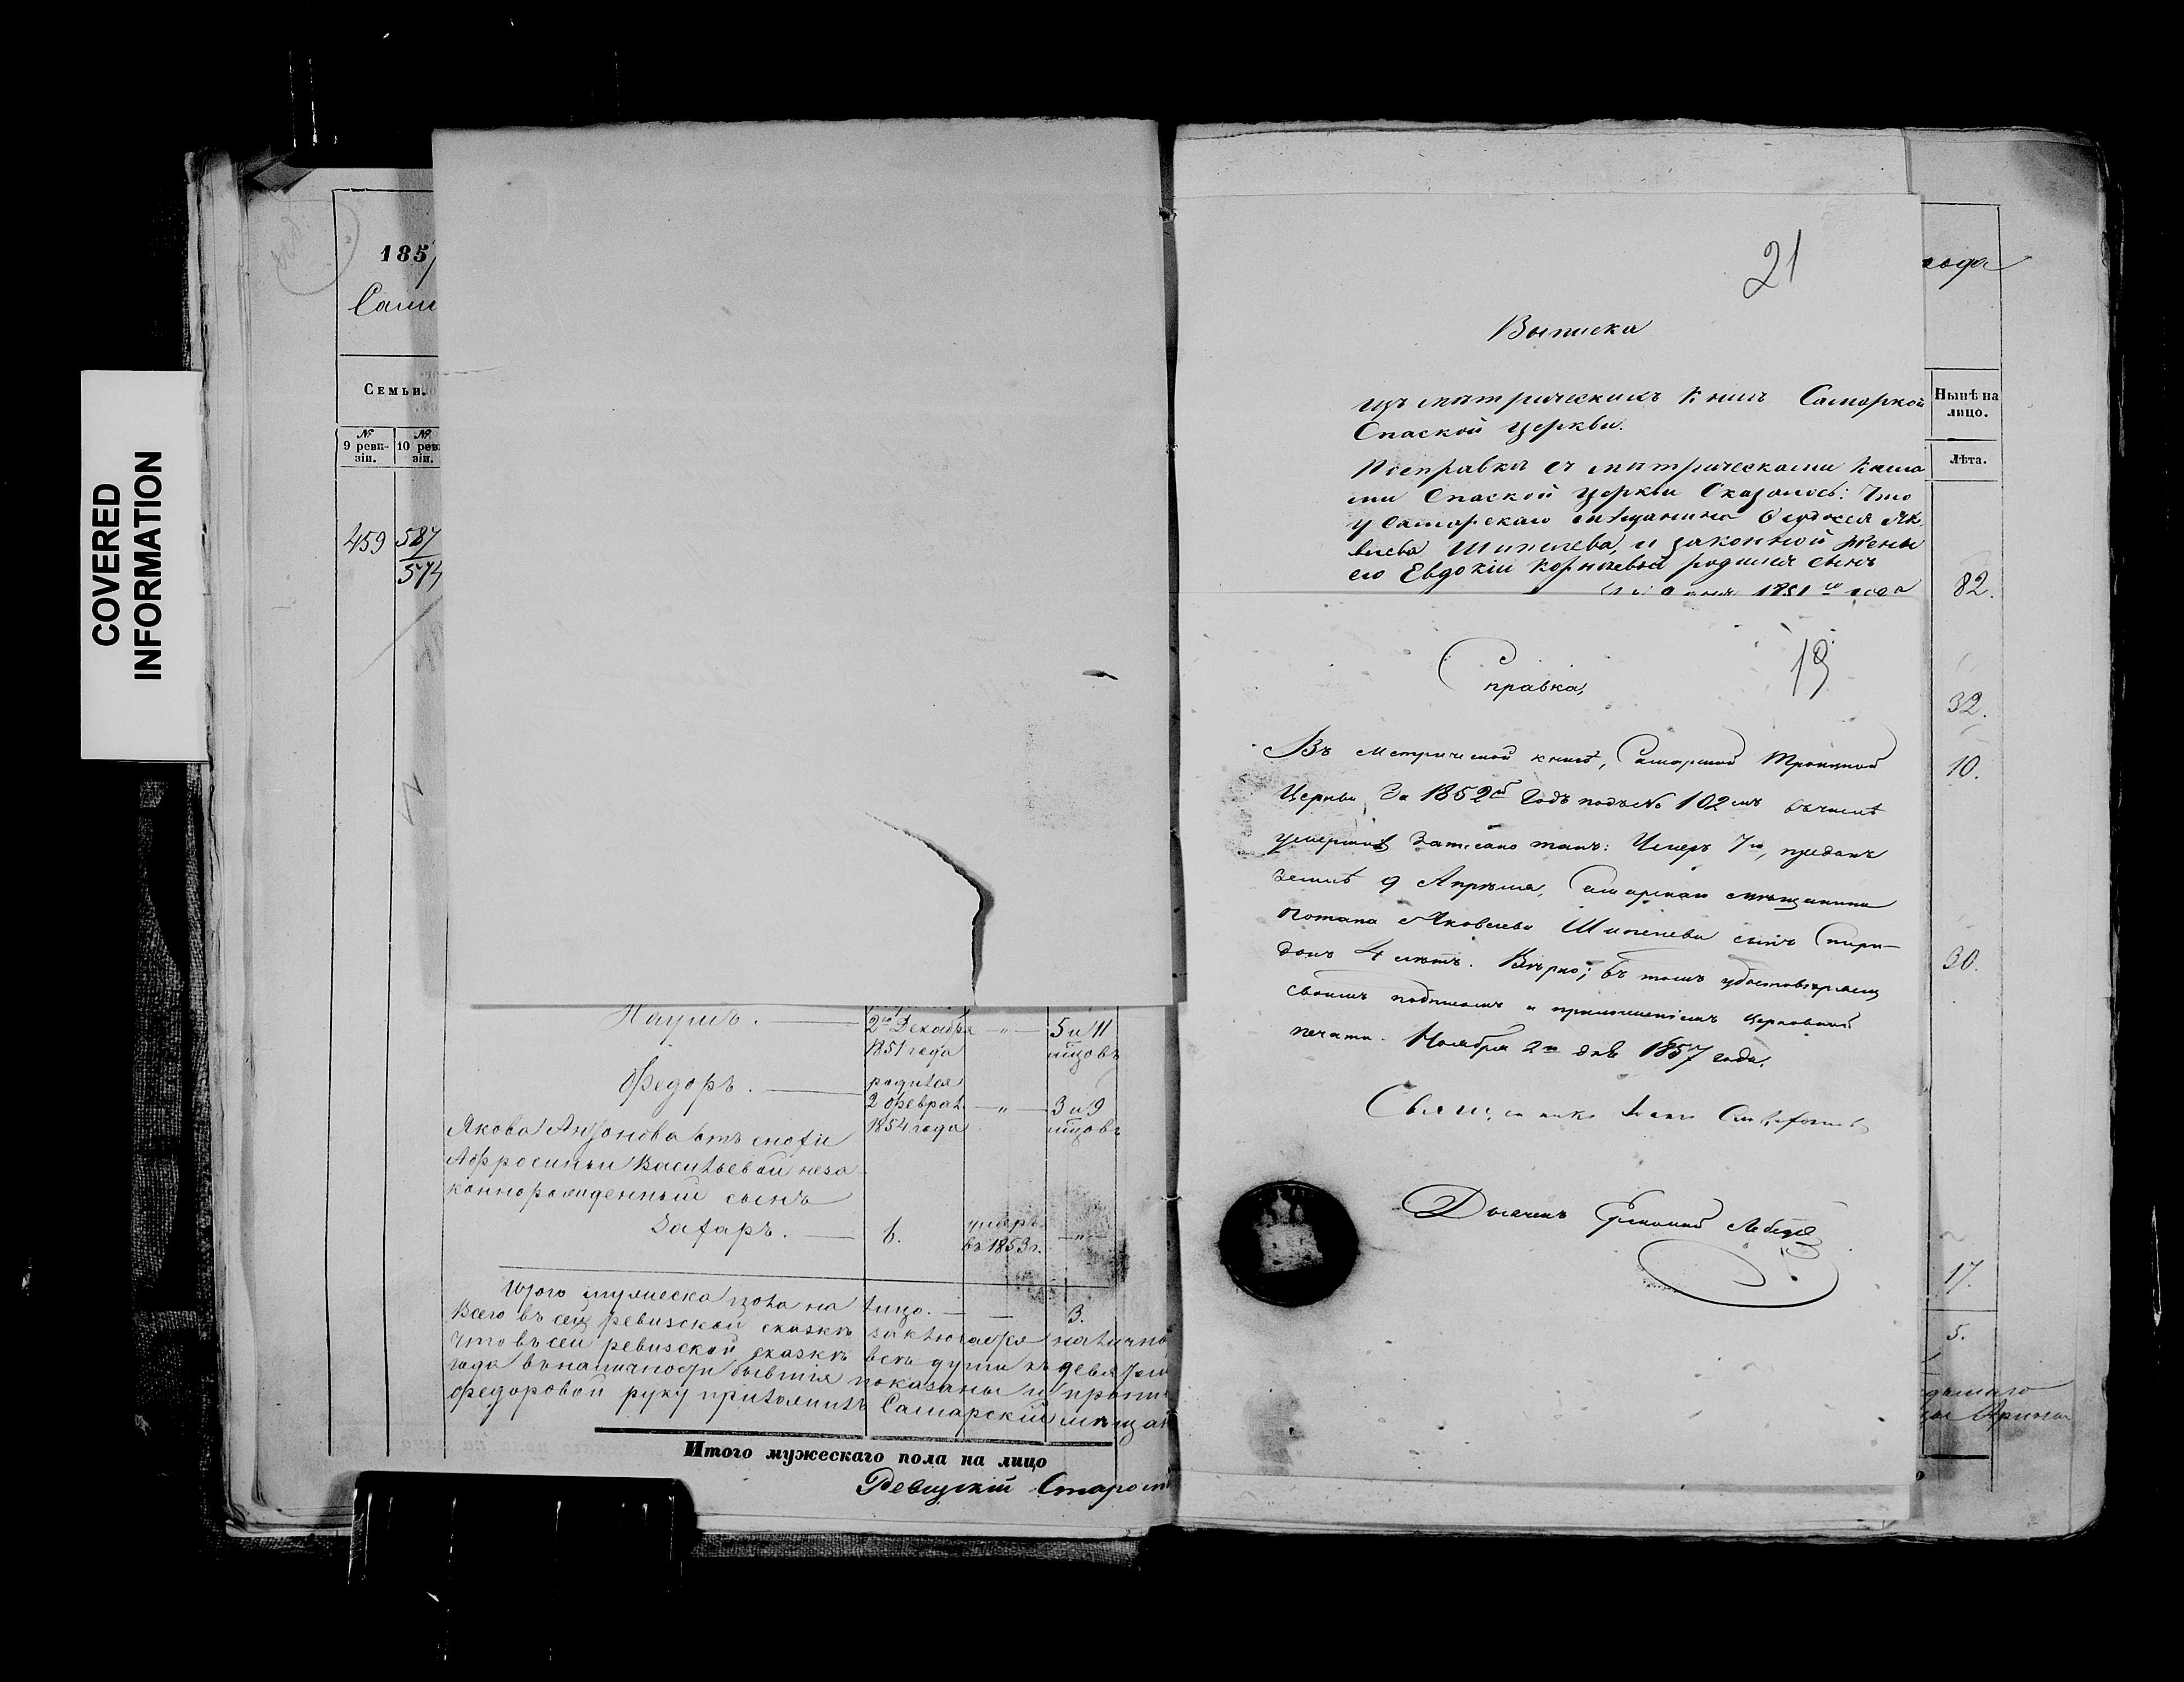 COVERED
INFORMATION
185
Сами
Семьи.
№
9 реви-
зіи.
№
10 рев
зіи.
459
587
574
Наумъ.
2го Декабря
1851 года
5 и 11
мцовъ
Федоръ.
родился
2 Феврал.
1854 года
3 и 9
мцовъ
Якова Антонова отъ снохи
Афросиньи Васильевой неза
коннорожденный сынъ
Захаръ.
6.
умеръ
въ 1853 г.
Итого мужеска пола на лицо.
3.
Всего въ сей ревизской сказкѣ заключается налично
Что въ сей ревизской сказкѣ всѣ души къ девятом
года въ наличности бывшія показаны и прот
Федоровой руку приложилъ Самарскій мѣщан
Итого мужескаго пола на лицо
Ревизскій Старост
21
Выписка
изъ мѣтрическихъ Книгъ Саморкой
Спаской церкви.
Посправки съ мѣтрическими Книга
ми Спаской церкви Оказалось: Что
у Самарскаго мѣщанина Ѳеодосея Як-
влева Шипилева, и законной жены
его Евдокіи Корнилевой родился сынъ
1851го года
Справка,
19
Въ метрической книгѣ, Самарской Троицкой
Церкви, За 1852й Годъ подъ № 102мъ въ числѣ
умершихъ Записано такъ: Умеръ 7го, преданъ
Землѣ 9 Апрѣля, Самарскаго мѣщанина
Потапа Яковлева Шипелева сынъ Спири-
донъ 4 лѣтъ. Вѣрно; въ томъ удостовѣряемъ
своимъ подписомъ и приложеніемъ Церковной
печати. Ноября 2го дня 1857 года.
Священникъ
Дьячекъ
года
Нынѣ на
лицо.
Лѣта.
82.
32.
10.
30.
17.
5.